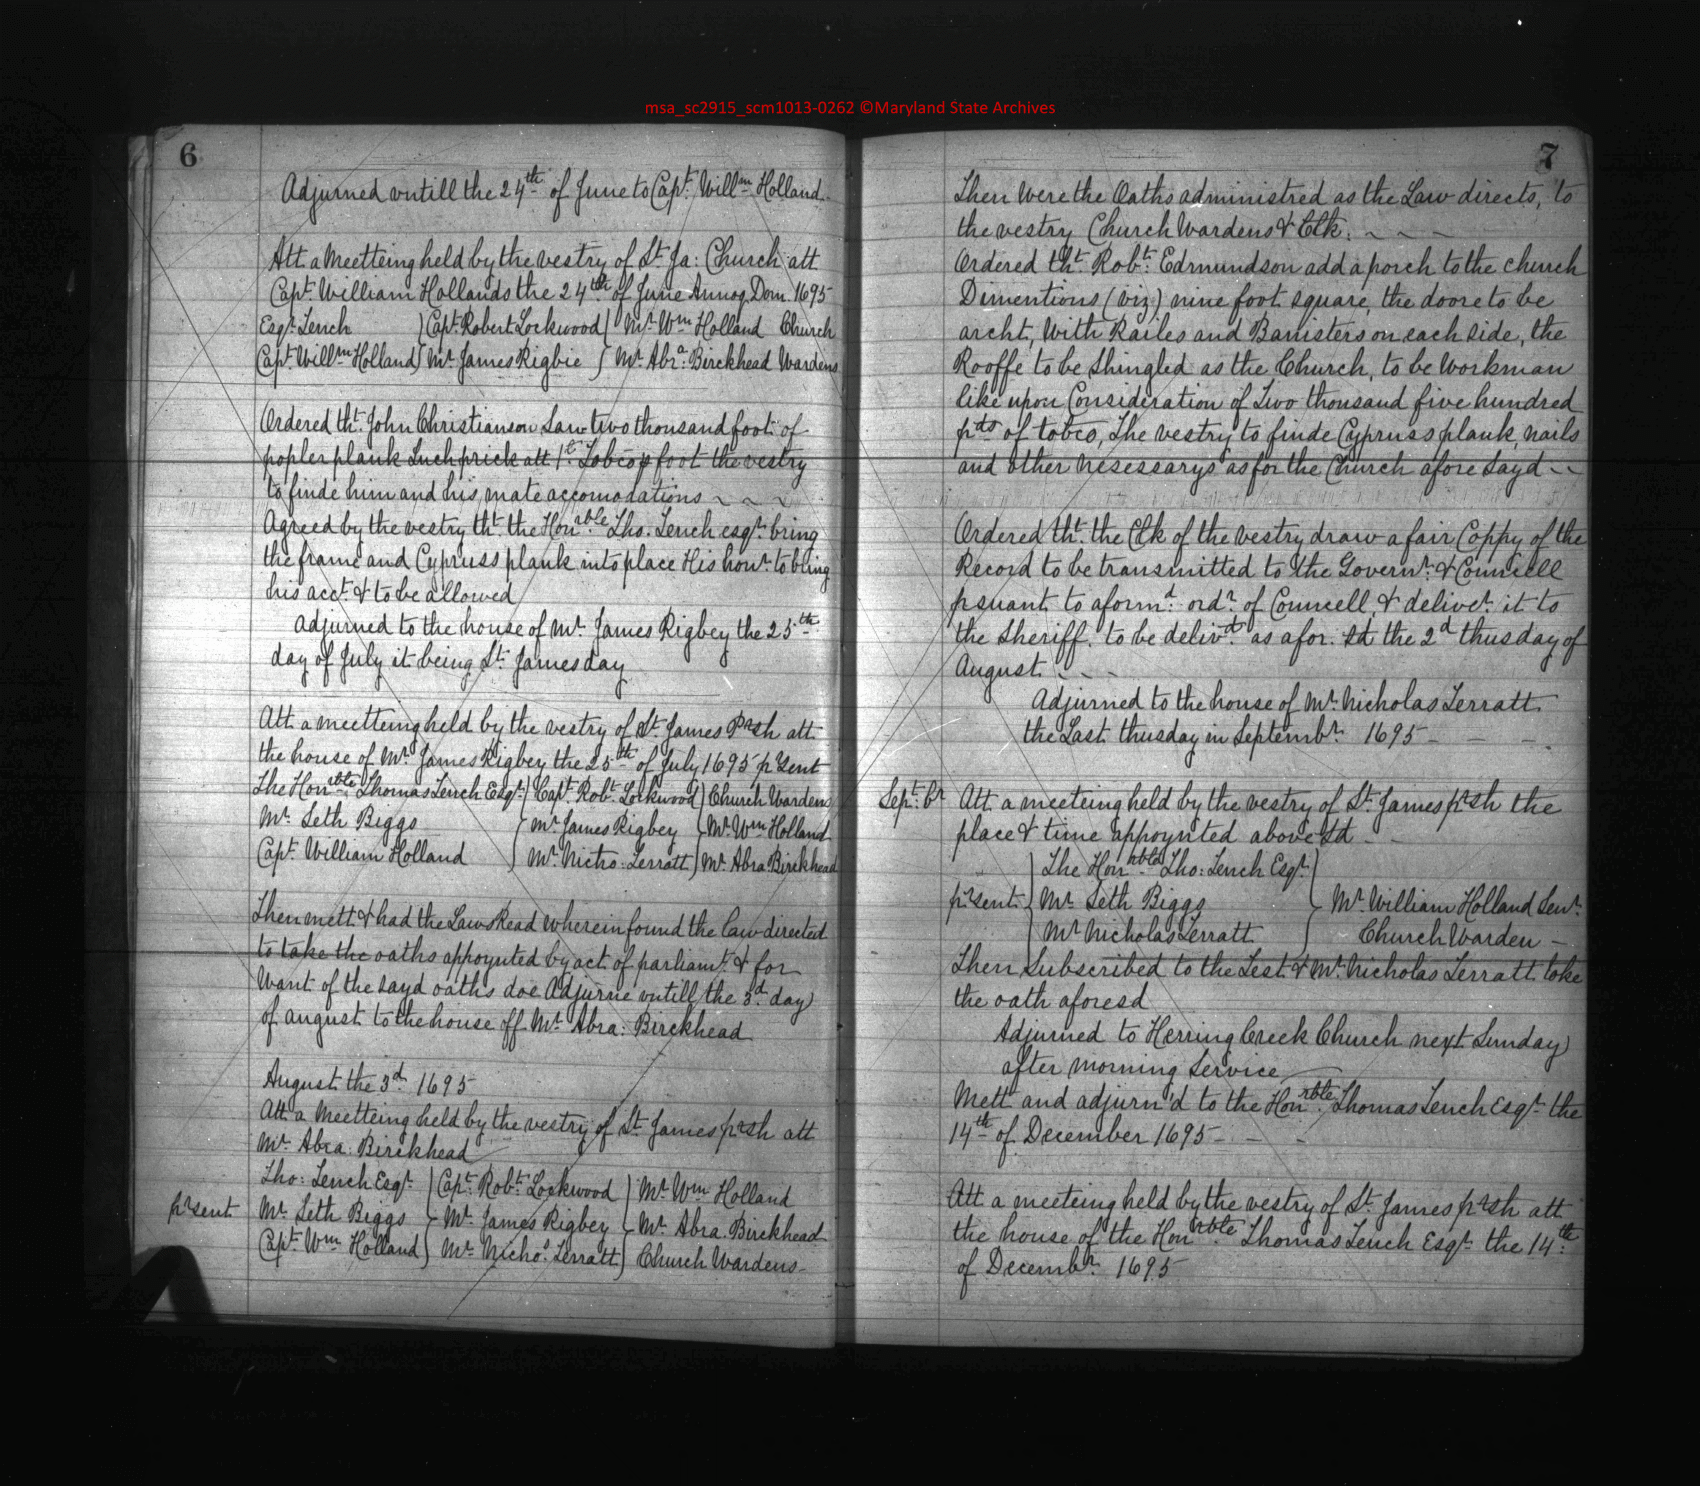 msa_sc2915_scm1013-0262 ©Maryland State Archives
6
Adjurned vntill the 24th of June to Capt. Willm Holland.
Att a Meetteing held by the vestry of St. Ja: Church att
Capt. William Hollands the 24th of June Annoq Dom. 1695
Esqr. Tench } Capt. Robert Lockwood } Mr. Wm Holland Church
Capt. Willm Holland } Mr. James Rigbie } Mr. Abra. Birckhead Wardens
Ordered tht. John Christianson Saw two thousand foot of
popler plank Inch prick att 1t. Tobco p foot the vestry
to finde him and his mate accomodations ~ ~ ~
Agreed by the vestry tht. the Honrble Tho. Tench esqr. bring
the frame and Cypruss plank into place His honr. to bring
his acct. & to be allowed
Adjurned to the house of Mr. James Rigbey the 25th
day of July it being St. James day
Att a meetteing held by the vestry of St. James Prsh att
the house of Mr. James Rigbey the 25th of July 1695 prsent
The Honrble Thomas Tench Esqr. } Capt. Robt. Lockwood } Church Wardens
Mr. Seth Biggs } Mr. James Rigbey } Mr. Wm Holland
Capt. William Holland } Mr. Nicho. Terratt } Mr. Abra. Birckhead
Then mett & had the Laws Read wherein found the Law directed
to take the oaths appoynted by act of parliamt. & for
Want of the sayd oaths doe Adjurne vntill the 3d. day
of august to the house off Mr. Abra: Birckhead
August the 3d. 1695
Att a Meetteing held by the vestry of St. James prsh att
Mr. Abra: Birckhead
Tho: Tench Esqr. } Capt. Robt. Lockwood } Mr. Wm Holland
prsent Mr. Seth Biggs } Mr. James Rigbey } Mr. Abra. Birckhead
Capt. Wm Holland } Mr. Nichos. Terratt } Church Wardens
7
Then Were the Oaths administred as the Law directs, to
the vestry Church Wardens & Clk. ~ ~ ~
Ordered tht. Robt. Edmundson add a porch to the church
Dimentions (viz) nine foot square, the doore to be
archt, With Railes and Bannisters on each side, the
Rooffe to be Shingled as the Church, to be Workman
like upon Consideration of Two thousand five hundred
pds of tobco, The vestry to finde Cypruss plank, nails
and other nesessarys as for the Church afore Sayd ~ ~
Ordered tht. the Clk of the vestry draw a fair Coppy of the
Record to be transmitted to the Governr. & Councell
psuant to aformd. ordr. of Councell, & delivr. it to
the Sheriff. to be delivrd as afor. sd the 2d thusday of
August - - -
Adjurned to the house of Mr. Nicholas Terratt
the Last thusday in Septembr. 1695 - - -
Sept. br Att a meeteing held by the vestry of St. James prsh the
place & time appoynted above sd - -
The Honrable Tho: Tench Esqr. }
prsent { Mr. Seth Biggs } Mr. William Holland Senr.
Mr Nicholas Terratt } Church Warden -
Then Subscribed to the Test. & Mr. Nicholas Terratt. toke
the oath aforesd
Adjurned to Herring Creek Church next Sunday
after morning Service
Mett and adjurn'd to the Honrble. Thomas Tench Esqr. the
14th of December 1695 - - -
Att a meeteing held by the vestry of St. James prsh att
the house of the Honrable Thomas Tench Esqr. the 14th.
of Decembr. 1695